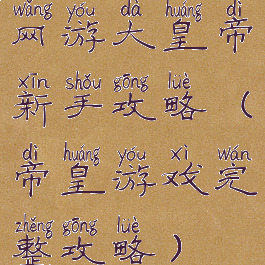 wǎng yóu dà huáng dì
网游大皇帝
xīn shǒu gōng lüè
新手攻略（
dì huáng yóu xì wán
帝皇游戏完
zhěng gōng lüè
整攻略）